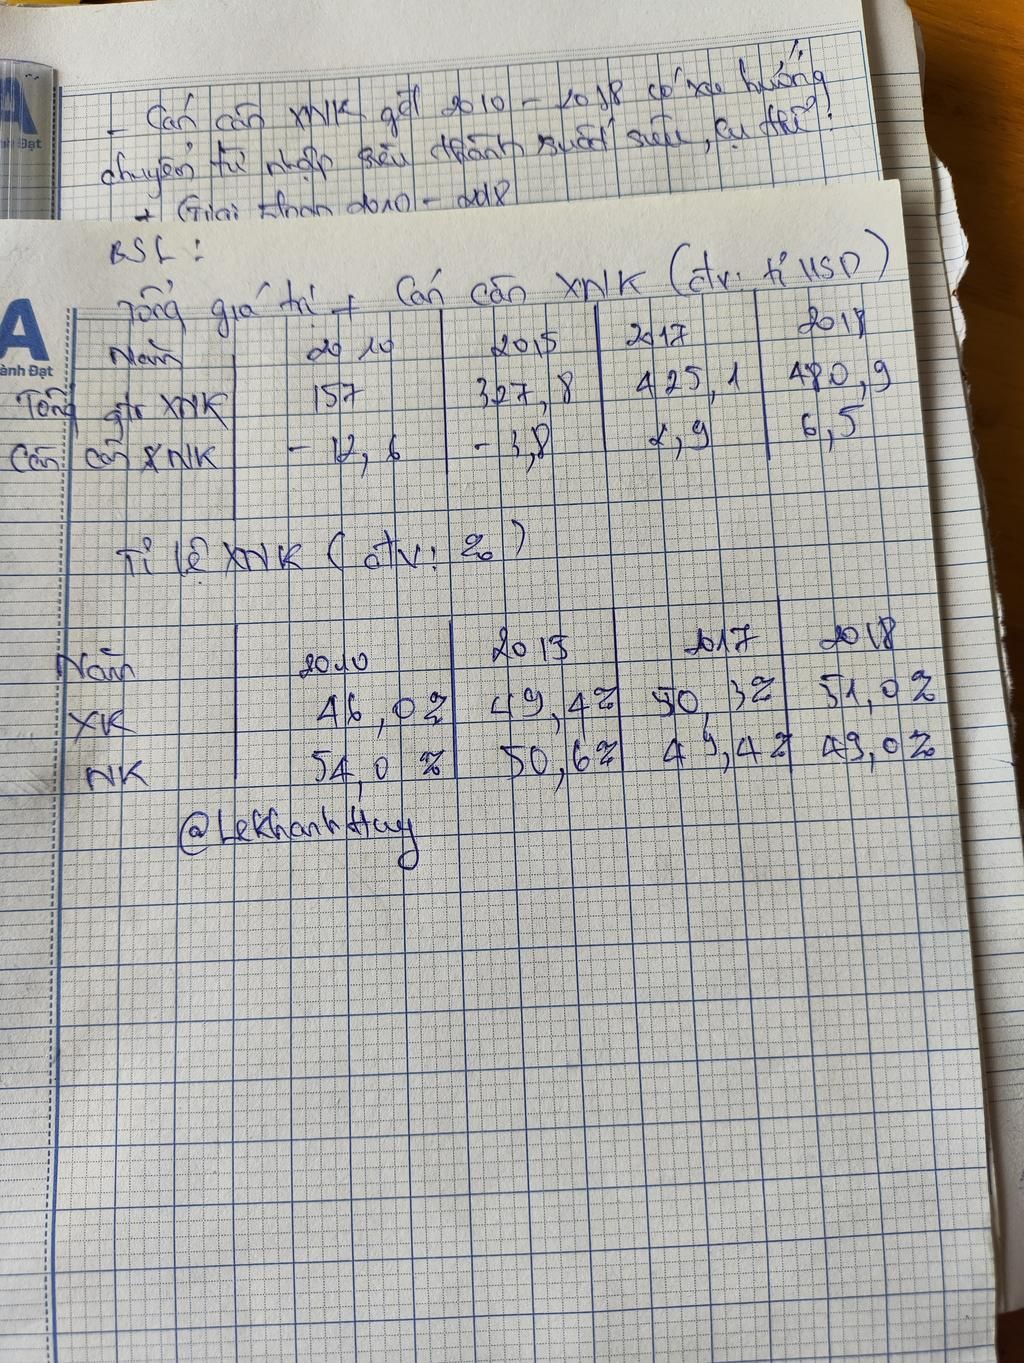 - Cán cân XNK gđ 2010 - 2018 có xu hướng
chuyển từ nhập siêu thành xuất siêu, cụ thể:
+ Giai đoạn 2010 - 2018
BSL:
Tổng giá trị + Cán cân XNK (đv: tỉ USD)
Năm 2010 2015 2017 2018
Tổng gtr XNK 157 327,8 425,1 480,9
Cán cân XNK - 12,6 - 3,8 1,9 6,5
Tỉ lệ XNK (đv: %)
Năm 2010 2015 2017 2018
XK 46,0% 49,4% 50,3% 51,0%
NK 54,0% 50,6% 49,4% 49,0%
@LeKhanhHuy
A
ành Đạt